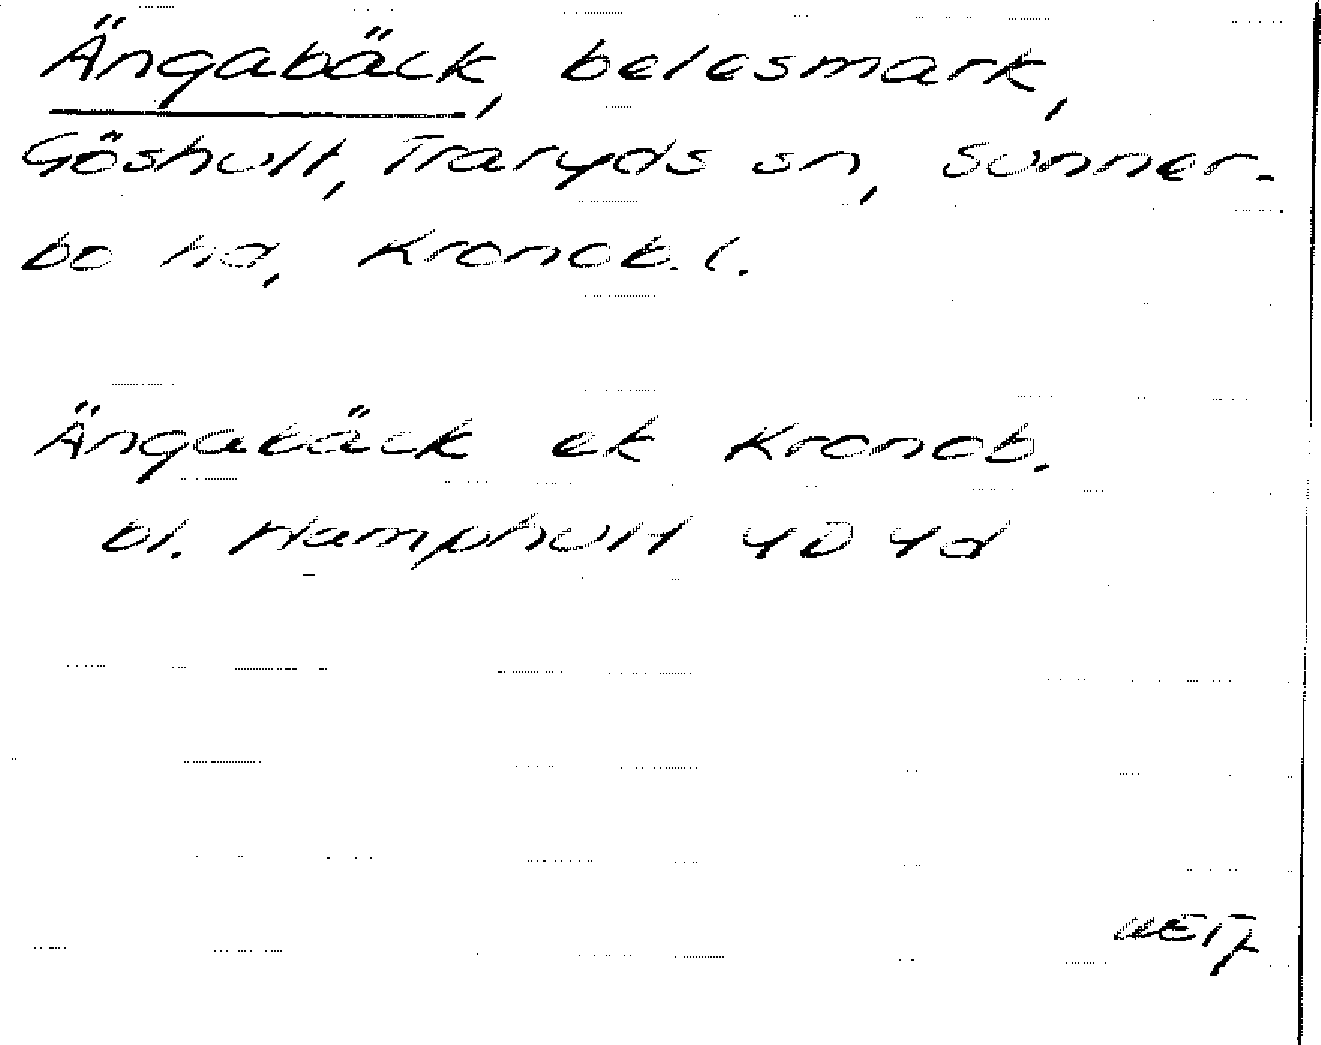 Ängabäck, betesmark,
Göshult, Traryds sn, Sunner-
bo hd, Kronob. l.
Ängabäck ek Kronob.
bl. Hamphult 4D 4d